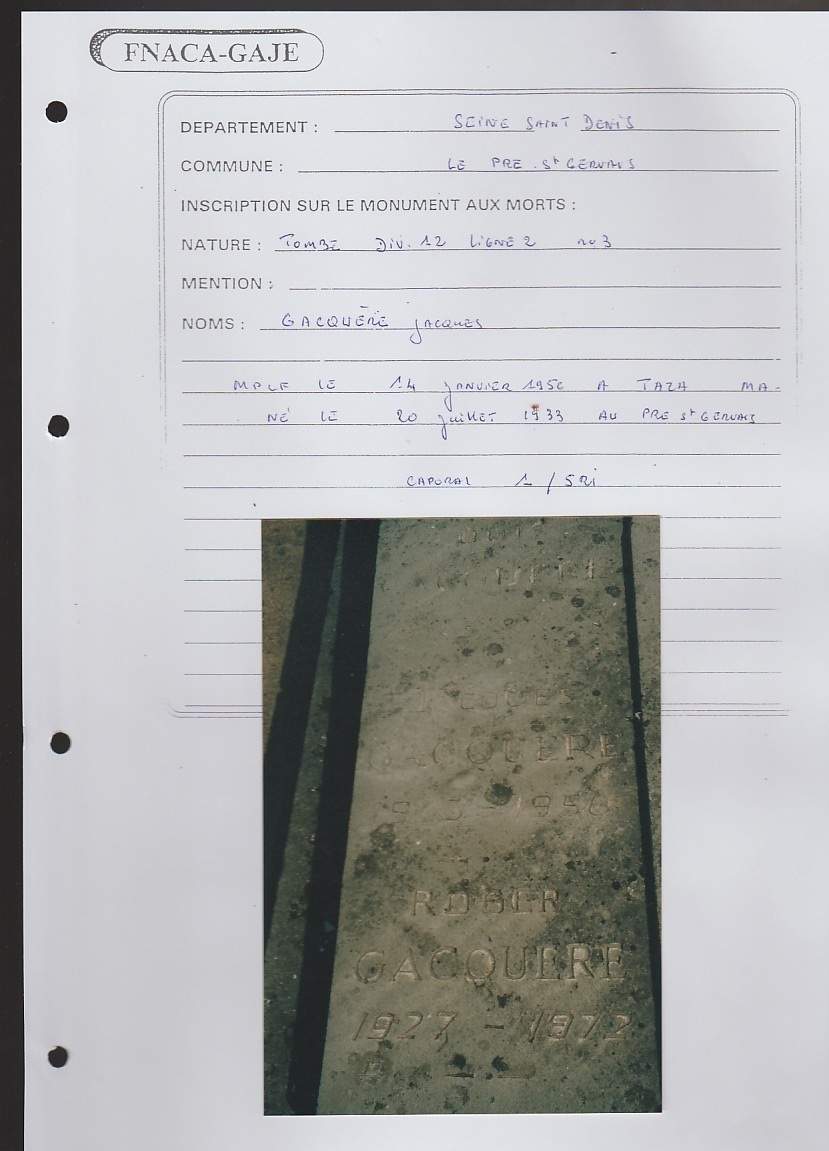 FNACA-GAJE
DEPARTEMENT : SEINE SAINT DENIS
COMMUNE : LE PRE St GERVAIS
INSCRIPTION SUR LE MONUMENT AUX MORTS :
NATURE : TOMBE DIV. 12 LIGNE 2 no 3
MENTION :
NOMS : GACQUÈRE JACQUES
MPLF LE 14 JANVIER 1956 A TAZA MA.
NÉ LE 20 JUILLET 1933 AU PRE St GERVAIS
CAPORAL 1 / 5 RI
GACQUERE
1956
ROGER
GACQUERE
1927 - 1972